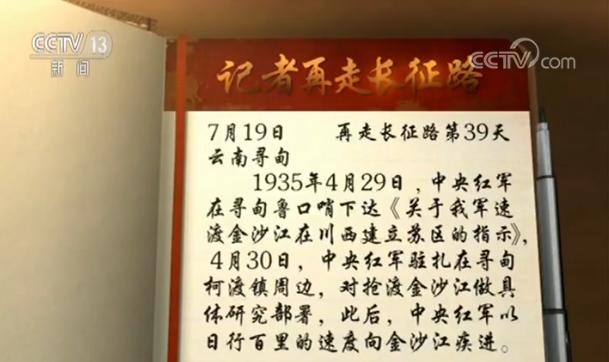 CCTV 13
新闻
CCTV.com
记者再走长征路
7月19日 再走长征路第39天
云南寻甸
1935年4月29日，中央红军
在寻甸鲁口哨下达《关于我军速
渡金沙江在川西建立苏区的指示》，
4月30日，中央红军驻扎在寻甸
柯渡镇周边，对抢渡金沙江做具
体研究部署，此后，中央红军以
日行百里的速度向金沙江疾进。